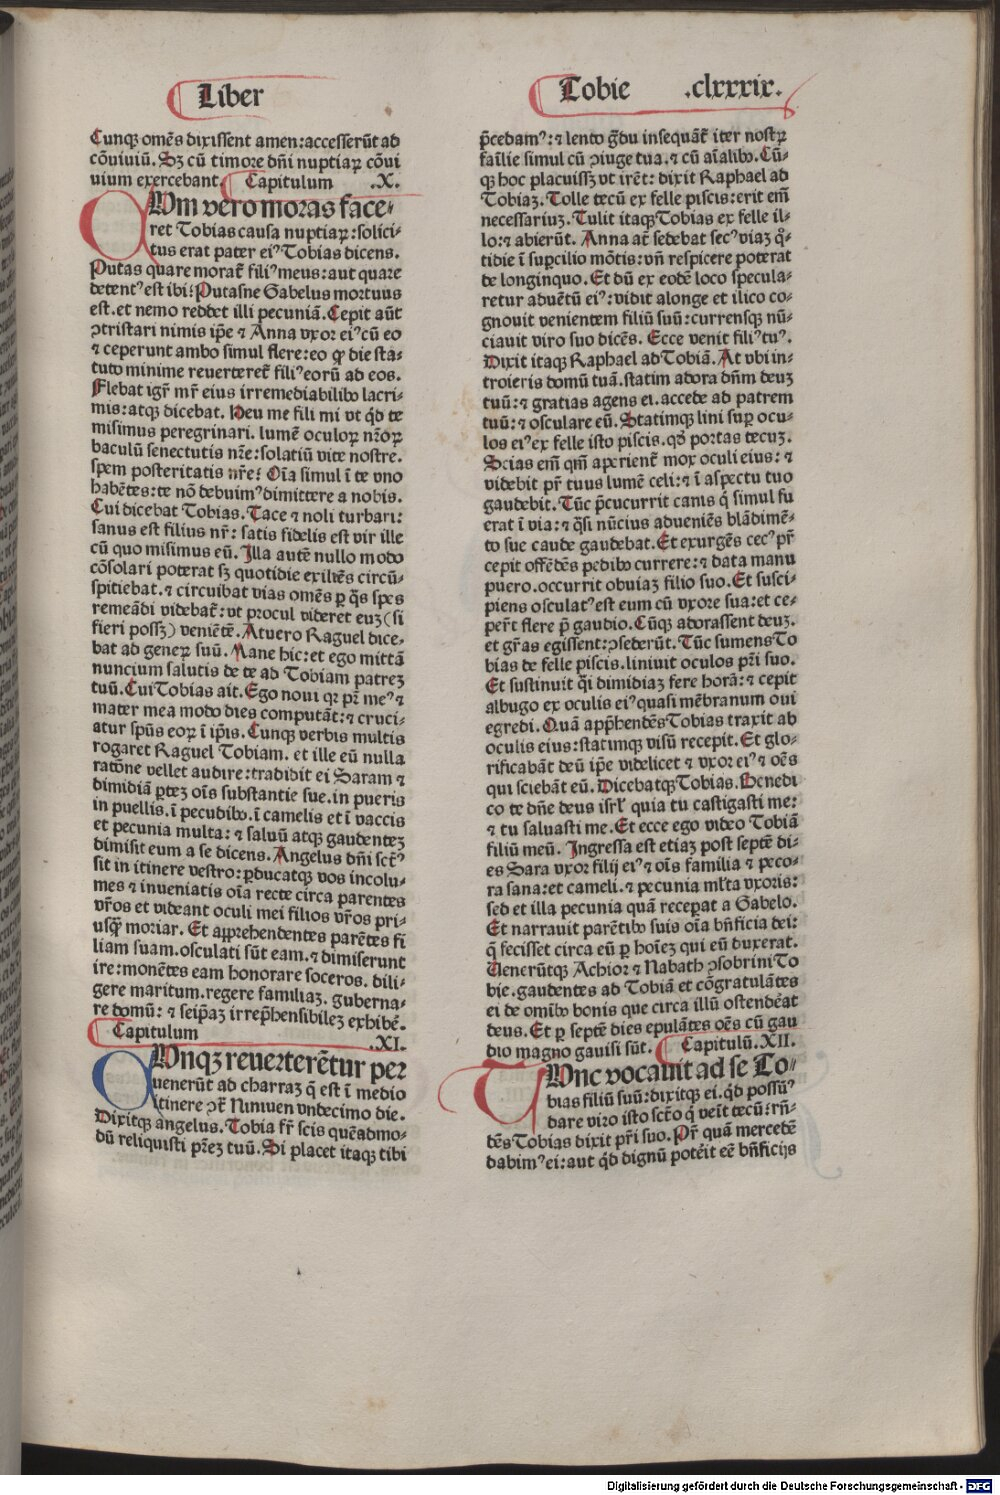 Liber
Tobie .clxxxix.
Cunqꝫ omēs dixissent amen: accesserūt ad
cōuiuiū. Sꝫ cū timore dn̄i nuptiaꝝ cōui
uium exercebant. Capitulum .X.
CUm vero moras face-
ret Tobias causa nuptiaꝝ: solici-
tus erat pater eiꝰ Tobias dicens.
Putas quare morat᷑ filiꝰ meus: aut quare
detentꝰ est ibi? Putasne Gabelus mortuus
est. et nemo reddet illi pecuniā. Cepit aūt
ꝯtristari nimis ip̄e ⁊ Anna vxor eiꝰ cū eo
⁊ ceperunt ambo simul flere: eo ꝙ die sta-
tuto minime reuerteret᷑ filiꝰ eorū ad eos.
Flebat igr̄ mr̄ eius irremediabilibꝰ lacri-
mis: atqꝫ dicebat. Heu me fili mi vt qͥd te
misimus peregrinari. lumē oculoꝝ nr̄oꝝ
baculū senectutis nr̄e: solatiū vite nostre.
spem posteritatis nr̄e? Oīa simul ī te vno
habētes: te nō debuimꝰ dimittere a nobis.
Cui dicebat Tobias. Tace ⁊ noli turbari:
sanus est filius nr̄: satis fidelis est vir ille
cū quo misimus eū. Illa autē nullo modo
cōsolari poterat sꝫ quotidie exiliēs circū-
spitiebat. ⁊ circuibat vias omēs ꝑ qͣs spes
remeādi videbat᷑: vt procul videret euꝫ (si
fieri possꝫ) veniētē. Atuero Raguel dice-
bat ad generꝫ suū. Mane hic: et ego mittā
nuncium salutis de te ad Tobiam patreꝫ
tuū. Cui Tobias ait. Ego noui qꝛ pr̄ meꝰ ⁊
mater mea modo dies computāt: ⁊ cruci-
atur spūs eoꝝ ī ip̄is. Cunqꝫ verbis multis
rogaret Raguel Tobiam. et ille eū nulla
ratōne vellet audire: tradidit ei Saram ⁊
dimidiā ꝑteꝫ oīs substantie sue. in pueris
in puellis. ī pecudibꝰ. ī camelis et ī vaccis
et pecunia multa: ⁊ saluū atqꝫ gaudenteꝫ
dimisit eum a se dicens. Angelus dn̄i sct̄ꝰ
sit in itinere vestro: ꝑducatqꝫ vos incolu-
mes ⁊ inueniatis oīa recte circa parentes
vr̄os et videant oculi mei filios vr̄os pri-
usqꝫ̄ moriar. Et apprehendentes parētes fi
liam suam. osculati sūt eam. ⁊ dimiserunt
ire: monētes eam honorare soceros. dili-
gere maritum. regere familiaꝫ. guberna-
re domū: ⁊ seip̄aꝫ irrep̄hensibileꝫ exhibē̄.
Capitulum .XI.
CUnqꝫ reuerterētur per
uenerūt ad charraꝫ q̄ est ī medio
itinere ꝯt̄ Niniuen vndecimo die.
Dixitqꝫ angelus. Tobia fr̄ scis quēadmo-
dū reliquisti pr̄eꝫ tuū. Si placet itaqꝫ tibi
p̄cedamꝰ: ⁊ lento gͣdu insequāt᷑ iter nostꝝ
faīlie simul cū ꝯiuge tua. ⁊ cū aīalibꝰ. Cū-
qꝫ hoc placuissꝫ vt irēt: dixit Raphael ad
Tobiaꝫ. Tolle tecū ex felle piscis: erit em̄
necessariuꝫ. Tulit itaqꝫ Tobias ex felle il-
lo: ⁊ abierūt. Anna at̄ sedebat secꝰ viaꝫ qͦ-
tidie ī suꝑcilio mōtis: vn̄ respicere poterat
de longinquo. Et dū ex eodē loco specula-
retur aduētū eiꝰ: vidit alonge et ilico co-
gnouit venientem filiū suū: currensqꝫ nū-
ciauit viro suo dicēs. Ecce venit filiꝰ tuꝰ.
Dixit itaqꝫ Raphael ad Tobiā. At vbi in-
troieris domū tuā. statim adora dn̄m deuꝫ
tuū: ⁊ gratias agens ei. accede ad patrem
tuū: ⁊ osculare eū. Statimqꝫ lini suꝑ ocu-
los eiꝰ ex felle isto piscis. qd̄ portas tecuꝫ.
Scias em̄ qm̄ aperient᷑ mox oculi eius: ⁊
videbit pr̄ tuus lumē celi: ⁊ ī aspectu tuo
gaudebit. Tūc p̄cucurrit canis qͥ simul fu
erat ī via: ⁊ qͣsi nūcius adueniēs blādimē-
to sue caude gaudebat. Et exurgēs cecꝰ pr̄
cepit offēdēs pedibꝰ currere: ⁊ data manu
puero. occurrit obuiaꝫ filio suo. Et susci-
piens osculatꝰ est eum cū vxore sua: et ce-
per̄t flere p̄ gaudio. Cūqꝫ adorassent deuꝫ.
et gr̄as egissent: ꝯsederūt. Tūc sumens To
bias de felle piscis. liniuit oculos pr̄i suo.
Et sustinuit qͣi dimidiaꝫ fere horā: ⁊ cepit
albugo ex oculis eiꝰ quasi mēbranum oui
egredi. Quā app̄hendēs Tobias traxit ab
oculis eius: statimqꝫ visū recepit. Et glo-
rificabāt deū ip̄e videlicet ⁊ vxor eiꝰ ⁊ oēs
qui sciebāt eū. Dicebatqꝫ Tobias. Benedi
co te dn̄e deus isrl̄ quia tu castigasti me:
⁊ tu saluasti me. Et ecce ego video Tobiā
filiū meū. Ingressa est etiaꝫ post septē di-
es Sara vxor filij eiꝰ ⁊ oīs familia ⁊ peco-
ra sana: et cameli. ⁊ pecunia ml̄ta vxoris:
sed et illa pecunia quā receꝑat a Gabelo.
Et narrauit parētibꝰ suis oīa bn̄ficia dei:
q̄ fecisset circa eū ꝑ hoīeꝫ qui eū duxerat.
Uenerūtqꝫ Achior ⁊ Nabath ꝯsobrini To
bie. gaudentes ad Tobiā et cōgratulātes
ei de omībꝰ bonis que circa illū ostendēat
deus. Et ꝑ septē dies epulātes oēs cū gau
dio magno gauisi sūt. Capitulū. XII.
TUnc vocauit ad se To-
bias filiū suū: dixitqꝫ ei. qͥd possūꝰ
dare viro isto sct̄o qͥ veīt tecū? rn̄-
dēs Tobias dixit pr̄i suo. Pr̄ quā mercedē
dabimꝰ ei: aut qͥd dignū potēit eē bn̄ficijs
Digitalisierung gefördert durch die Deutsche Forschungsgemeinschaft - DFG